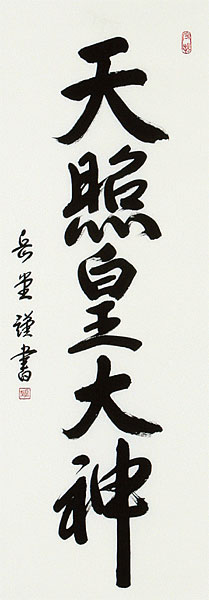 天照皇大神
岳堂謹書